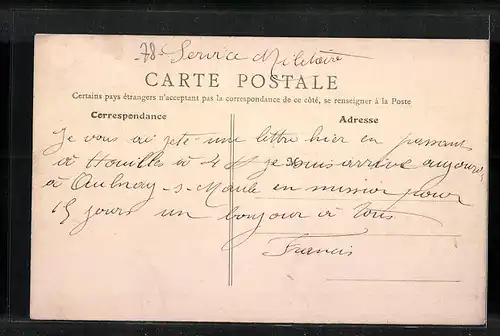 78- Service Militaire
CARTE POSTALE
Certains pays étrangers n'acceptent pas la correspondance de ce côté, se renseigner à la Poste
Correspondance
Adresse
Je vous ai jeté une lettre hier en passant
à Houilles à 4 H je suis arrivé aujourd
à Aulnay-s-Mauldre en mission pour
15 jours un bonjour à tous
Francis